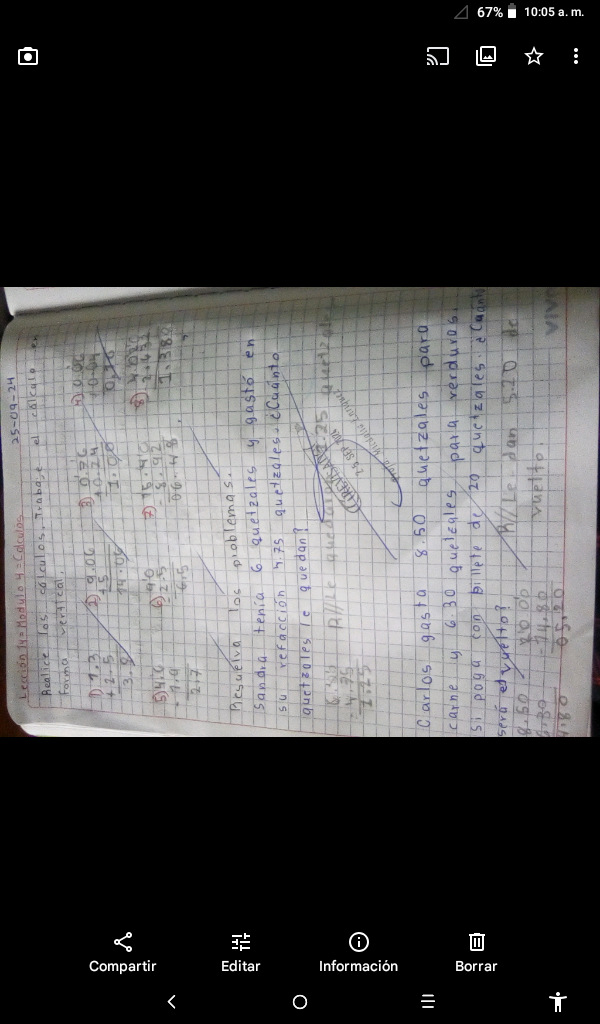 67% 10:05 a. m.
Lección 14 = Modulo 4 = Calculos 25-09-24
Realice los cálculos. Trabaje el cálculo en
forma vertical.
1) 1.3
+ 2.5
2) 9.06
+5
14.06
3) 0.76
+0.24
1.00
4) 0.06
5) 4.6
- 1.9
2.7
6) 9.0
- 2.5
6.5
7) 15.40
- 8.92
06.48
8)
Resuelva los problemas.
Sandra tenía 6 quetzales y gastó en
su refacción 4.75 quetzales. ¿Cuánto
quetzales le quedan?
R// Le quedan 1.25
6.00
- 4.75
1.25
Carlos gasta 8.50 quetzales para
carne y 6.30 quetzales para verduras.
Si paga con billete de 20 quetzales. ¿Cuánt
será el vuelto?
R// Le dan 5.20 de
vuelto.
8.50
6.30
4.80
20.00
- 14.80
05.20
Compartir
Editar
Información
Borrar